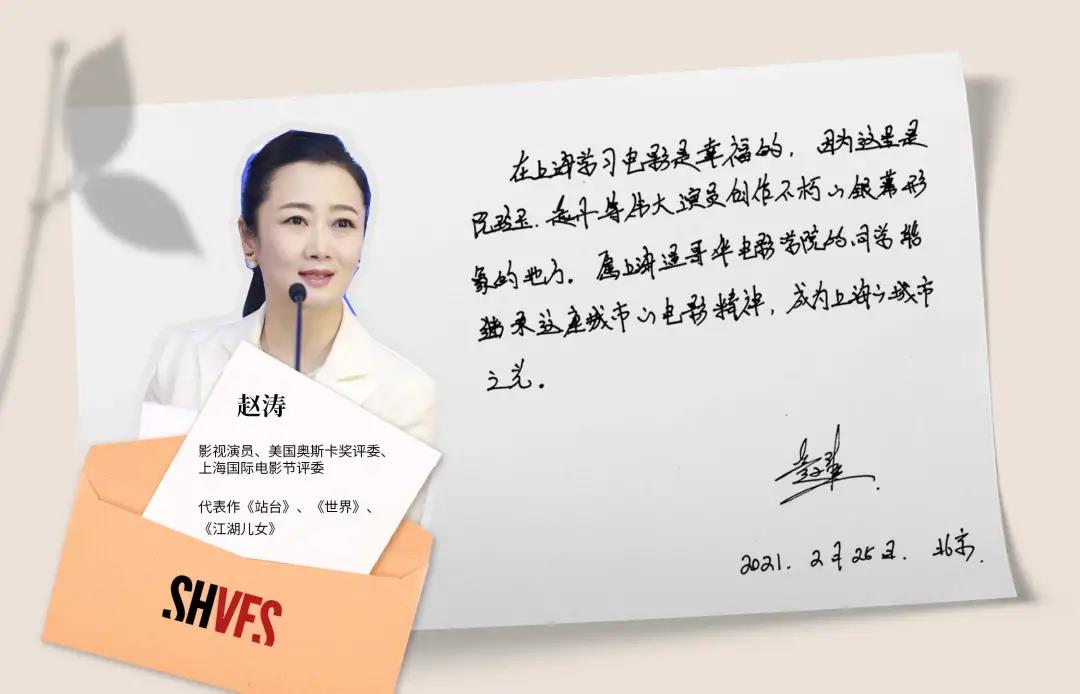 在上海学习电影是幸福的，因为这里是
阮玲玉、赵丹等伟大演员创作不朽的银幕形
象的地方。愿上海温哥华电影学院的同学能
继承这座城市的电影精神，成为上海的城市
之光。
2021.2月25日.北京.
赵涛
影视演员、美国奥斯卡奖评委、
上海国际电影节评委
代表作《站台》、《世界》、
《江湖儿女》
SHVFS